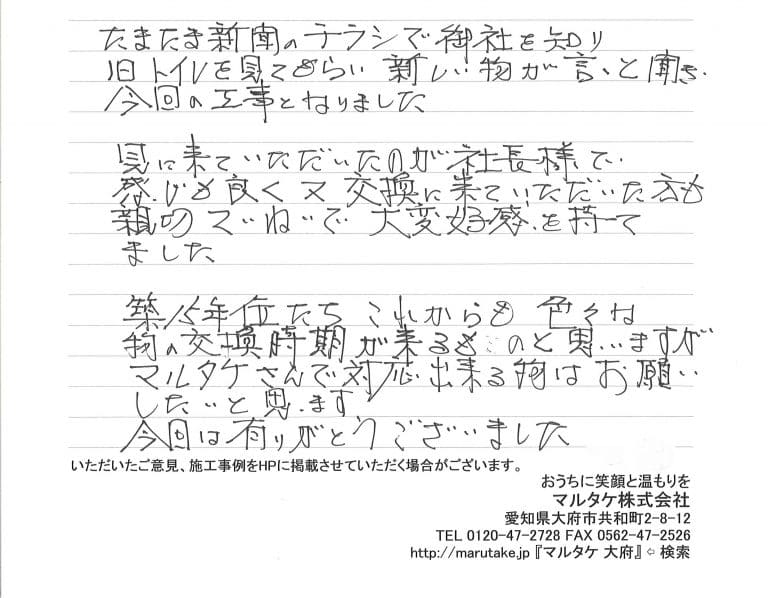 たまたま新聞のチラシで御社を知り
旧トイレを見てもらい新しい物が言いと聞き、
今回の工事となりました
見に来ていただいたのが社長様で、
感じも良く又交換に来ていただいた方も
親切ていねいで大変好感を持て
ました
築15年位たちこれからも色々な
物の交換時期が来るものと思いますが
マルタケさんで対応出来る物はお願い
したいと思います
今回は有りがとうございました
いただいたご意見、施工事例をHPに掲載させていただく場合がございます。
おうちに笑顔と温もりを
マルタケ株式会社
愛知県大府市共和町2-8-12
TEL 0120-47-2728 FAX 0562-47-2526
http://marutake.jp『マルタケ 大府』⇦ 検索